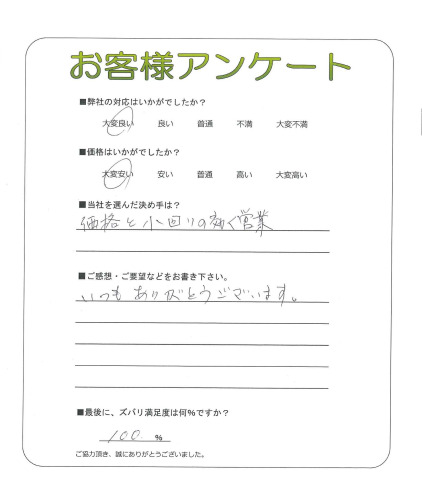 お客様アンケート
■弊社の対応はいかがでしたか？
大変良い 良い 普通 不満 大変不満
■価格はいかがでしたか？
大変安い 安い 普通 高い 大変高い
■当社を選んだ決め手は？
価格と小回りの効く営業
■ご感想・ご要望などをお書き下さい。
いつもありがとうございます。
■最後に、ズバリ満足度は何%ですか？
100 %
ご協力頂き、誠にありがとうございました。